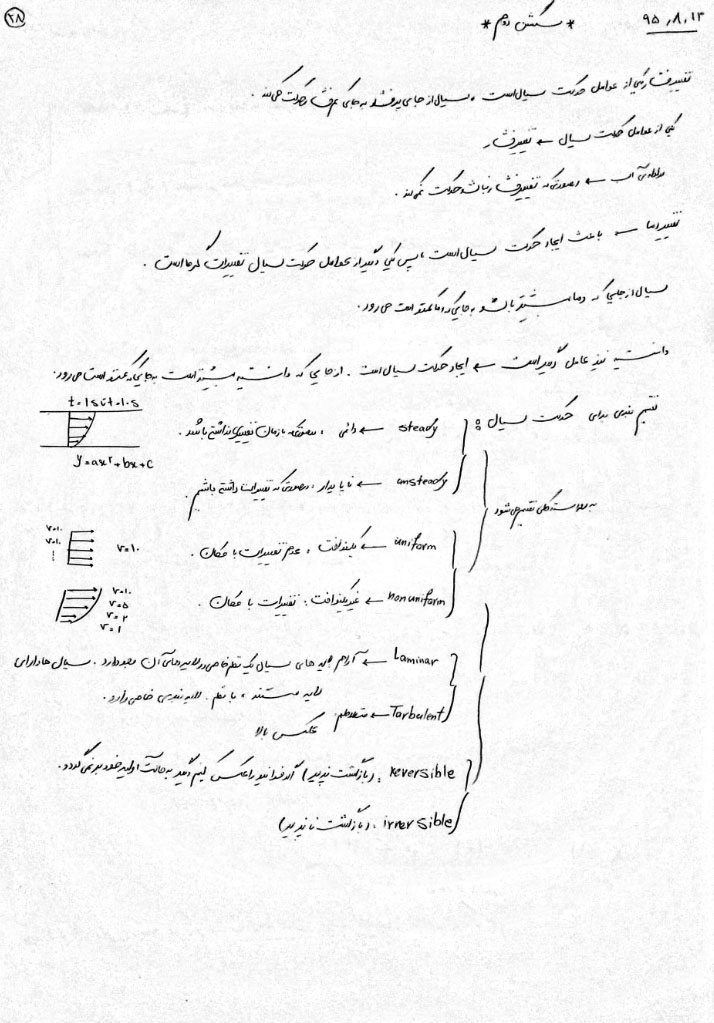 ۹۵,۸,۱۳
* سکشن دوم *
۲۸
تغییر فشار یکی از عوامل حرکت سیال است ، سیال از جای پرفشار به جای کم فشار حرکت می کند .
یکی از عوامل حرکت سیال ← تغییر فشار
آب ← درصورتی که تغییر فشار نباشد حرکت نمی کند .
تغییر دما ← باعث ایجاد حرکت سیال است ، پس یکی دیگر از عوامل حرکت سیال تغییرات گرما است .
سیال از جایی که دما بیشتر باشد به جایی که دما کمتر است می رود .
دانسیته نیز عامل دیگر است ← ایجاد حرکت سیال است . از جایی که دانسیته بیشتر است به جایی که کمتر است می رود .
تقسیم بندی برای حرکت سیال :
به دسته کلی تقسیم می شود
steady ← دائمی ، درصورتی که با زمان تغییری نداشته باشد .
t=1s ن t=1۰s
y=ax²+bx+c
unsteady ← ناپایدار ، درصورتی که تغییرات داشته باشیم .
uniform ← یکنواخت ، عدم تغییرات با مکان .
v=۱۰
v=۱۰
v=۱۰
nonuniform ← غیریکنواخت ، تغییرات با مکان .
v=۱۰
v=۵
v=۲
v=۱
Laminar ← آرام لایه های سیال یک نظم خاصی در لایه های آن وجود دارد . سیال ها دارای
لایه هستند ، با نظم . لایه بندی خاصی دارد .
Turbulent ← متلاطم
عکس بالا
reversible : (بازگشت پذیر) اگر فرآیند را عکس کنیم دیگر به حالت اولیه خود بر نمی گردد .
irrersible : (بازگشت ناپذیر)